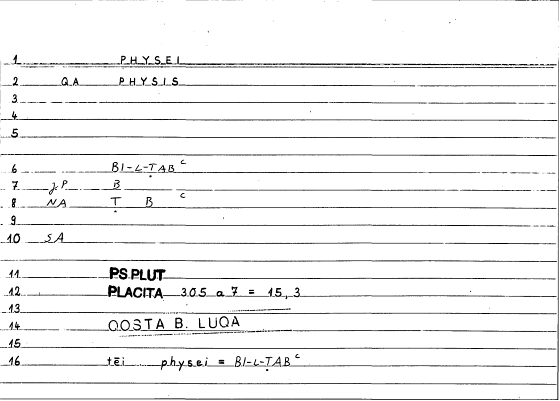 1 PHYSEI
2 QA PHYSIS
3
4
5
6 BI-L-ṬABᶜ
7 B
8 NA Ṭ B ᶜ
9
10 SA
11 PS.PLUT
12 PLACITA 305 a 7 = 15, 3
13
14 QOSTA B. LUQA
15
16 tēi physei = BI-L-ṬABᶜ